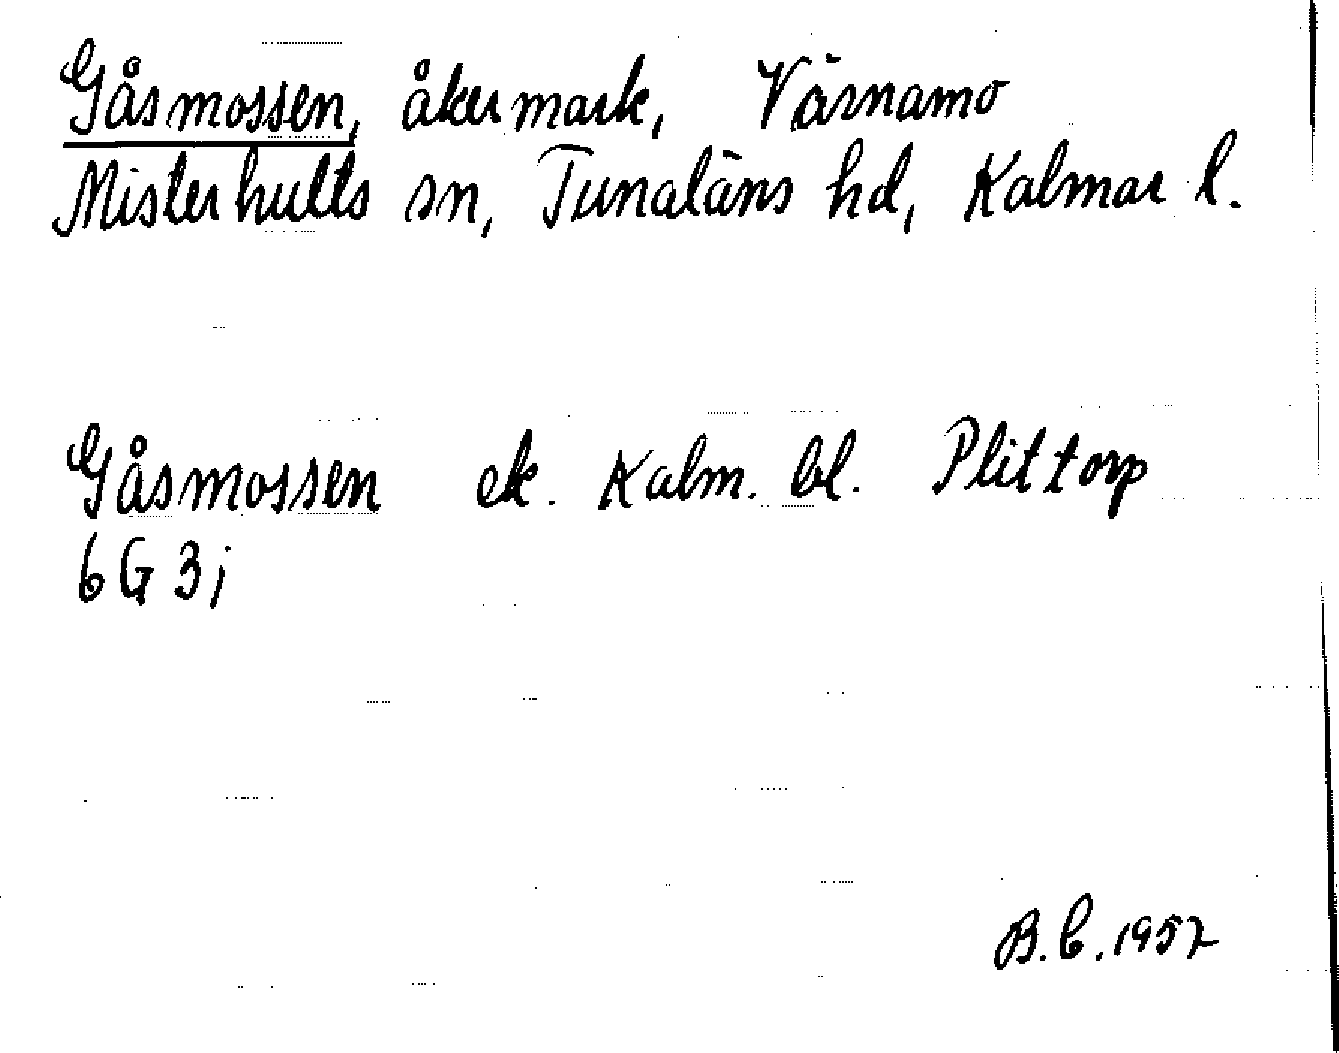 Gåsmossen, åkermark, Värnamo
Misterhults sn, Tunaläns hd, Kalmar l.
Gåsmossen ek. Kalm. bl. Plittorp
6G 3j
B.C. 1957